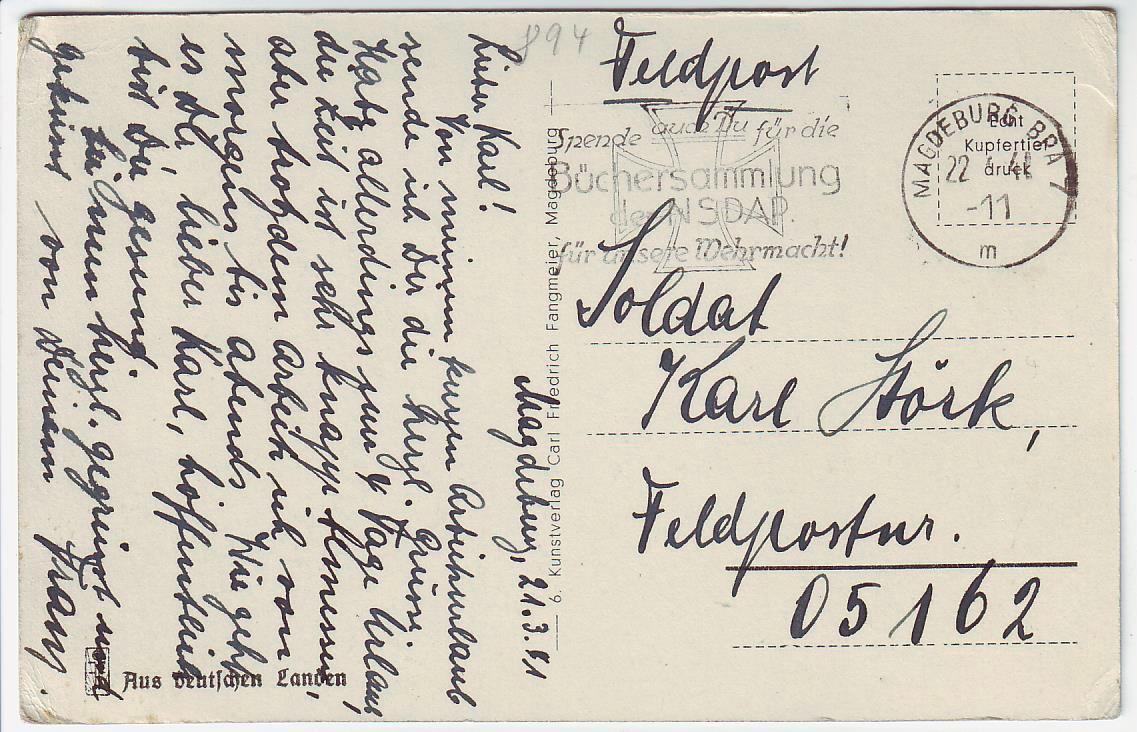 894
Feldpost
Spende auch Du für die
Büchersammlung
der NSDAP.
für unsere Wehrmacht!
MAGDEBURG BPA 7
22.4.41
-11
m
Echt
Kupfertief
druck
Soldat
Karl Störk,
Feldpostnr.
05162
Magdeburg, 21.3.41
Lieber Karl!
Von meinem kurzen Arbeitsurlaub
sende ich Dir die herzl. Grüsse.
Habe allerdings nur 4 Tage Urlaub,
die Zeit ist sehr knapp bemessen,
aber trotzdem arbeite ich von
morgens bis abends. Wie geht
es Dir, lieber Karl, hoffentlich
bist Du gesund.
Sei nun herzl. gegrüsst und
geküsst von Deinem Franz.
6. Kunstverlag Carl Friedrich Fangmeier, Magdeburg
Aus deutschen Landen